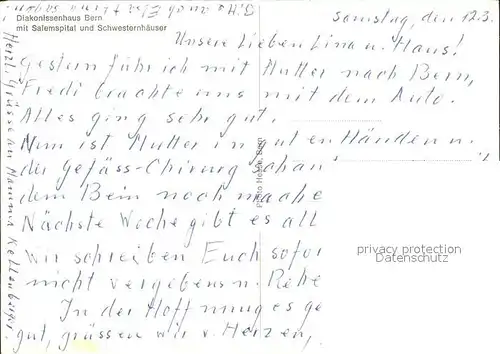 Diakonissenhaus Bern
mit Salemspital und Schwesternhäuser
Samstag, den 12.3.
Unsere Lieben Lina u. Hans!
Gestern fuhr ich mit Mutter nach Bern,
Fredi brachte uns mit dem Auto.
Alles ging sehr gut.
Nun ist Mutter in guten Händen u.
der Gefäss-Chirurg schau
dem Bein noch mache
Nächste Woche gibt es all
wir schreiben Euch sofor
nicht vergebens n.
In der Hoffnung es ge
gut, grüssen wir v. Herzen,
Herzl. Grüsse an Mamma Kellenberger.
Photo Bern
privacy protection
Datenschutz